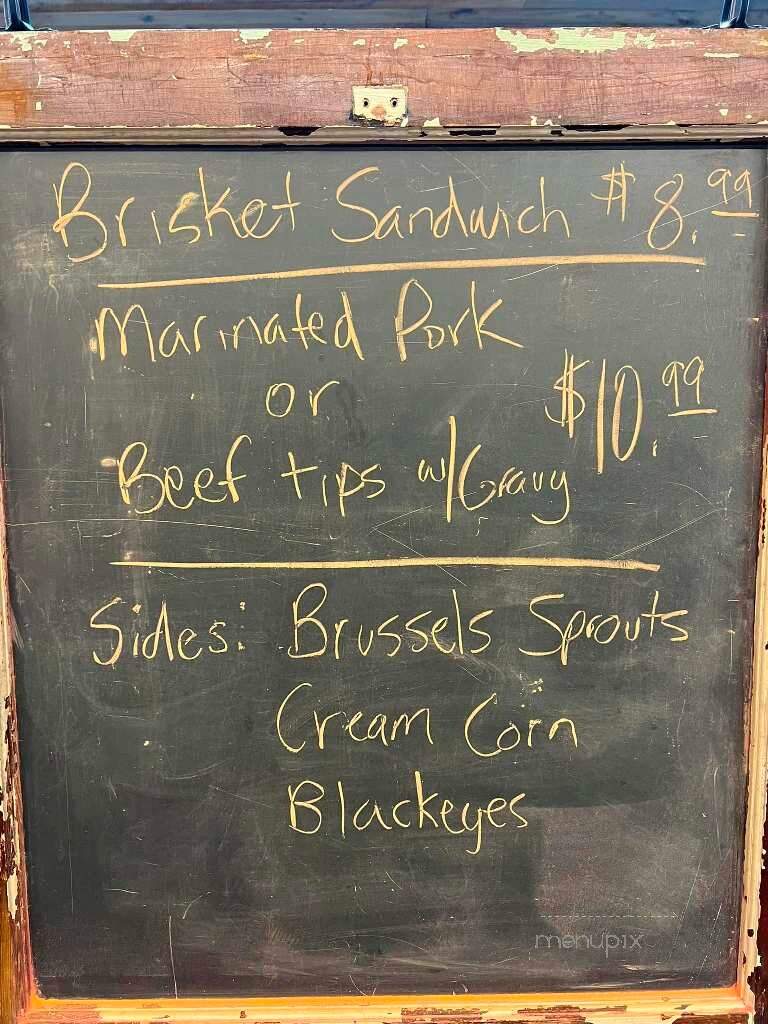 Brisket Sandwich $8.99
Marinated Pork
or
$10.99
Beef tips w/Gravy
Sides: Brussels Sprouts
Cream Corn
Blackeyes
menupix